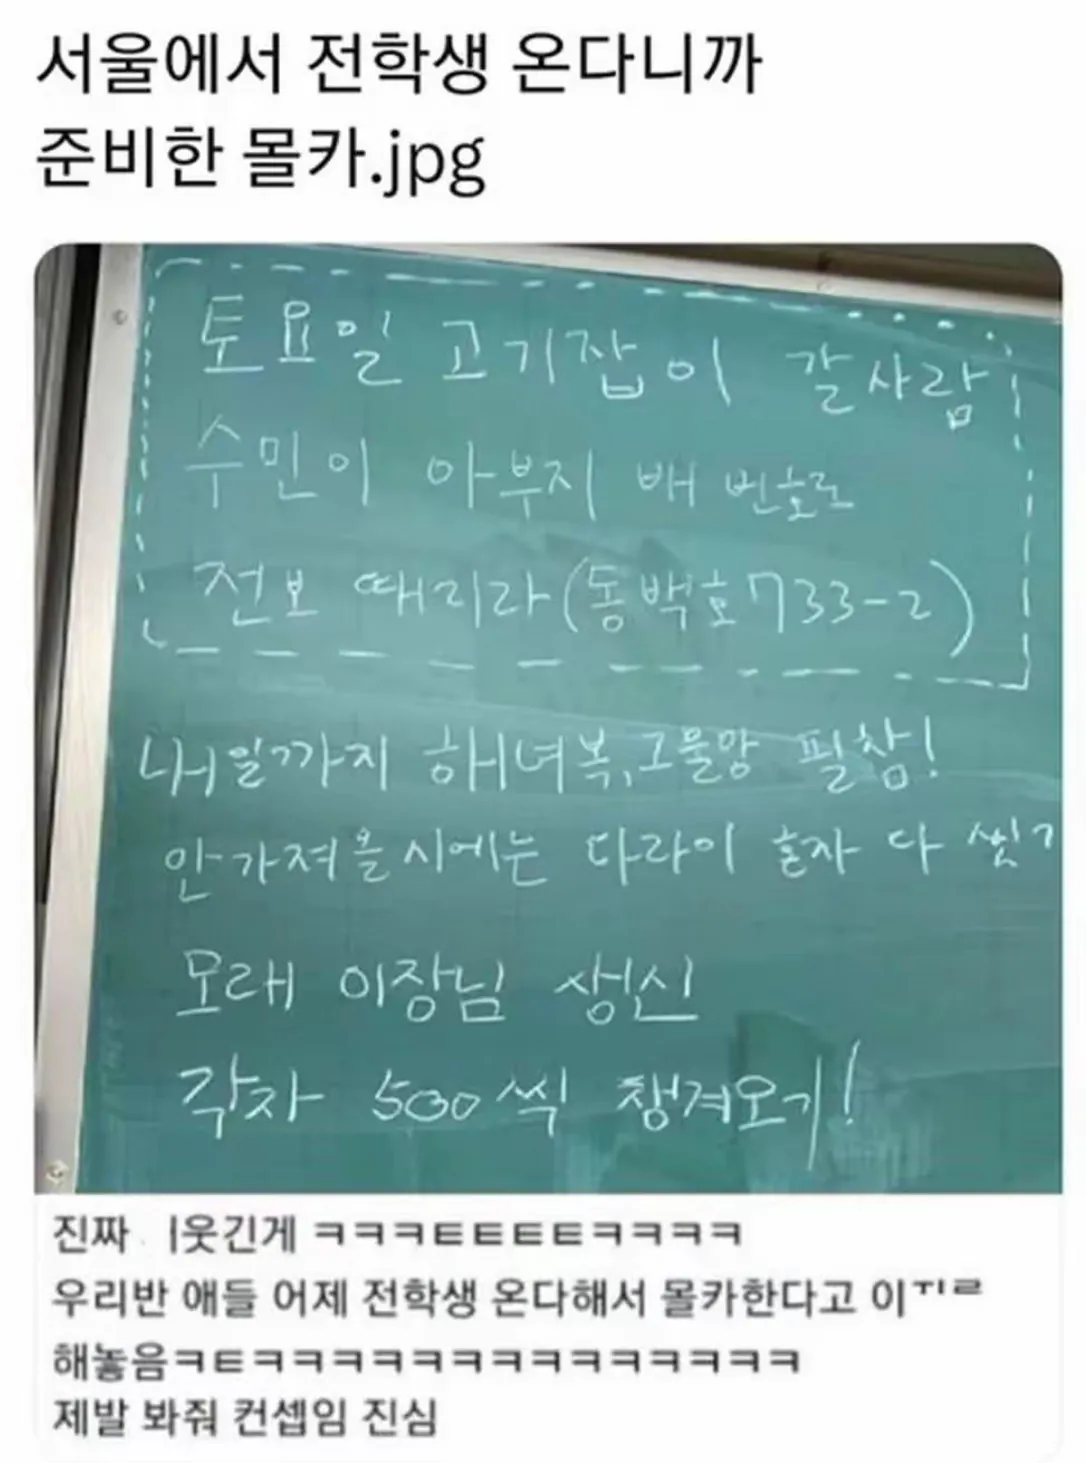 서울에서 전학생 온다니까
준비한 몰카.jpg
토요일 고기잡이 갈사람
수민이 아부지 배 번호로
전보 때리라(동백호733-2)
내일까지 해녀복,그물망 필참!
안가져올시에는 다라이 혼자 다 씻기
모래 이장님 생신
각자 500씩 챙겨오기!
진짜 웃긴게 ㅋㅋㅋㅌㅌㅌㅌㅋㅋㅋㅋ
우리반 애들 어제 전학생 온다해서 몰카한다고
해놓음ㅋㅌㅋㅋㅋㅋㅋㅋㅋㅋㅋㅋㅋㅋㅋㅋ
제발 봐줘 컨셉임 진심